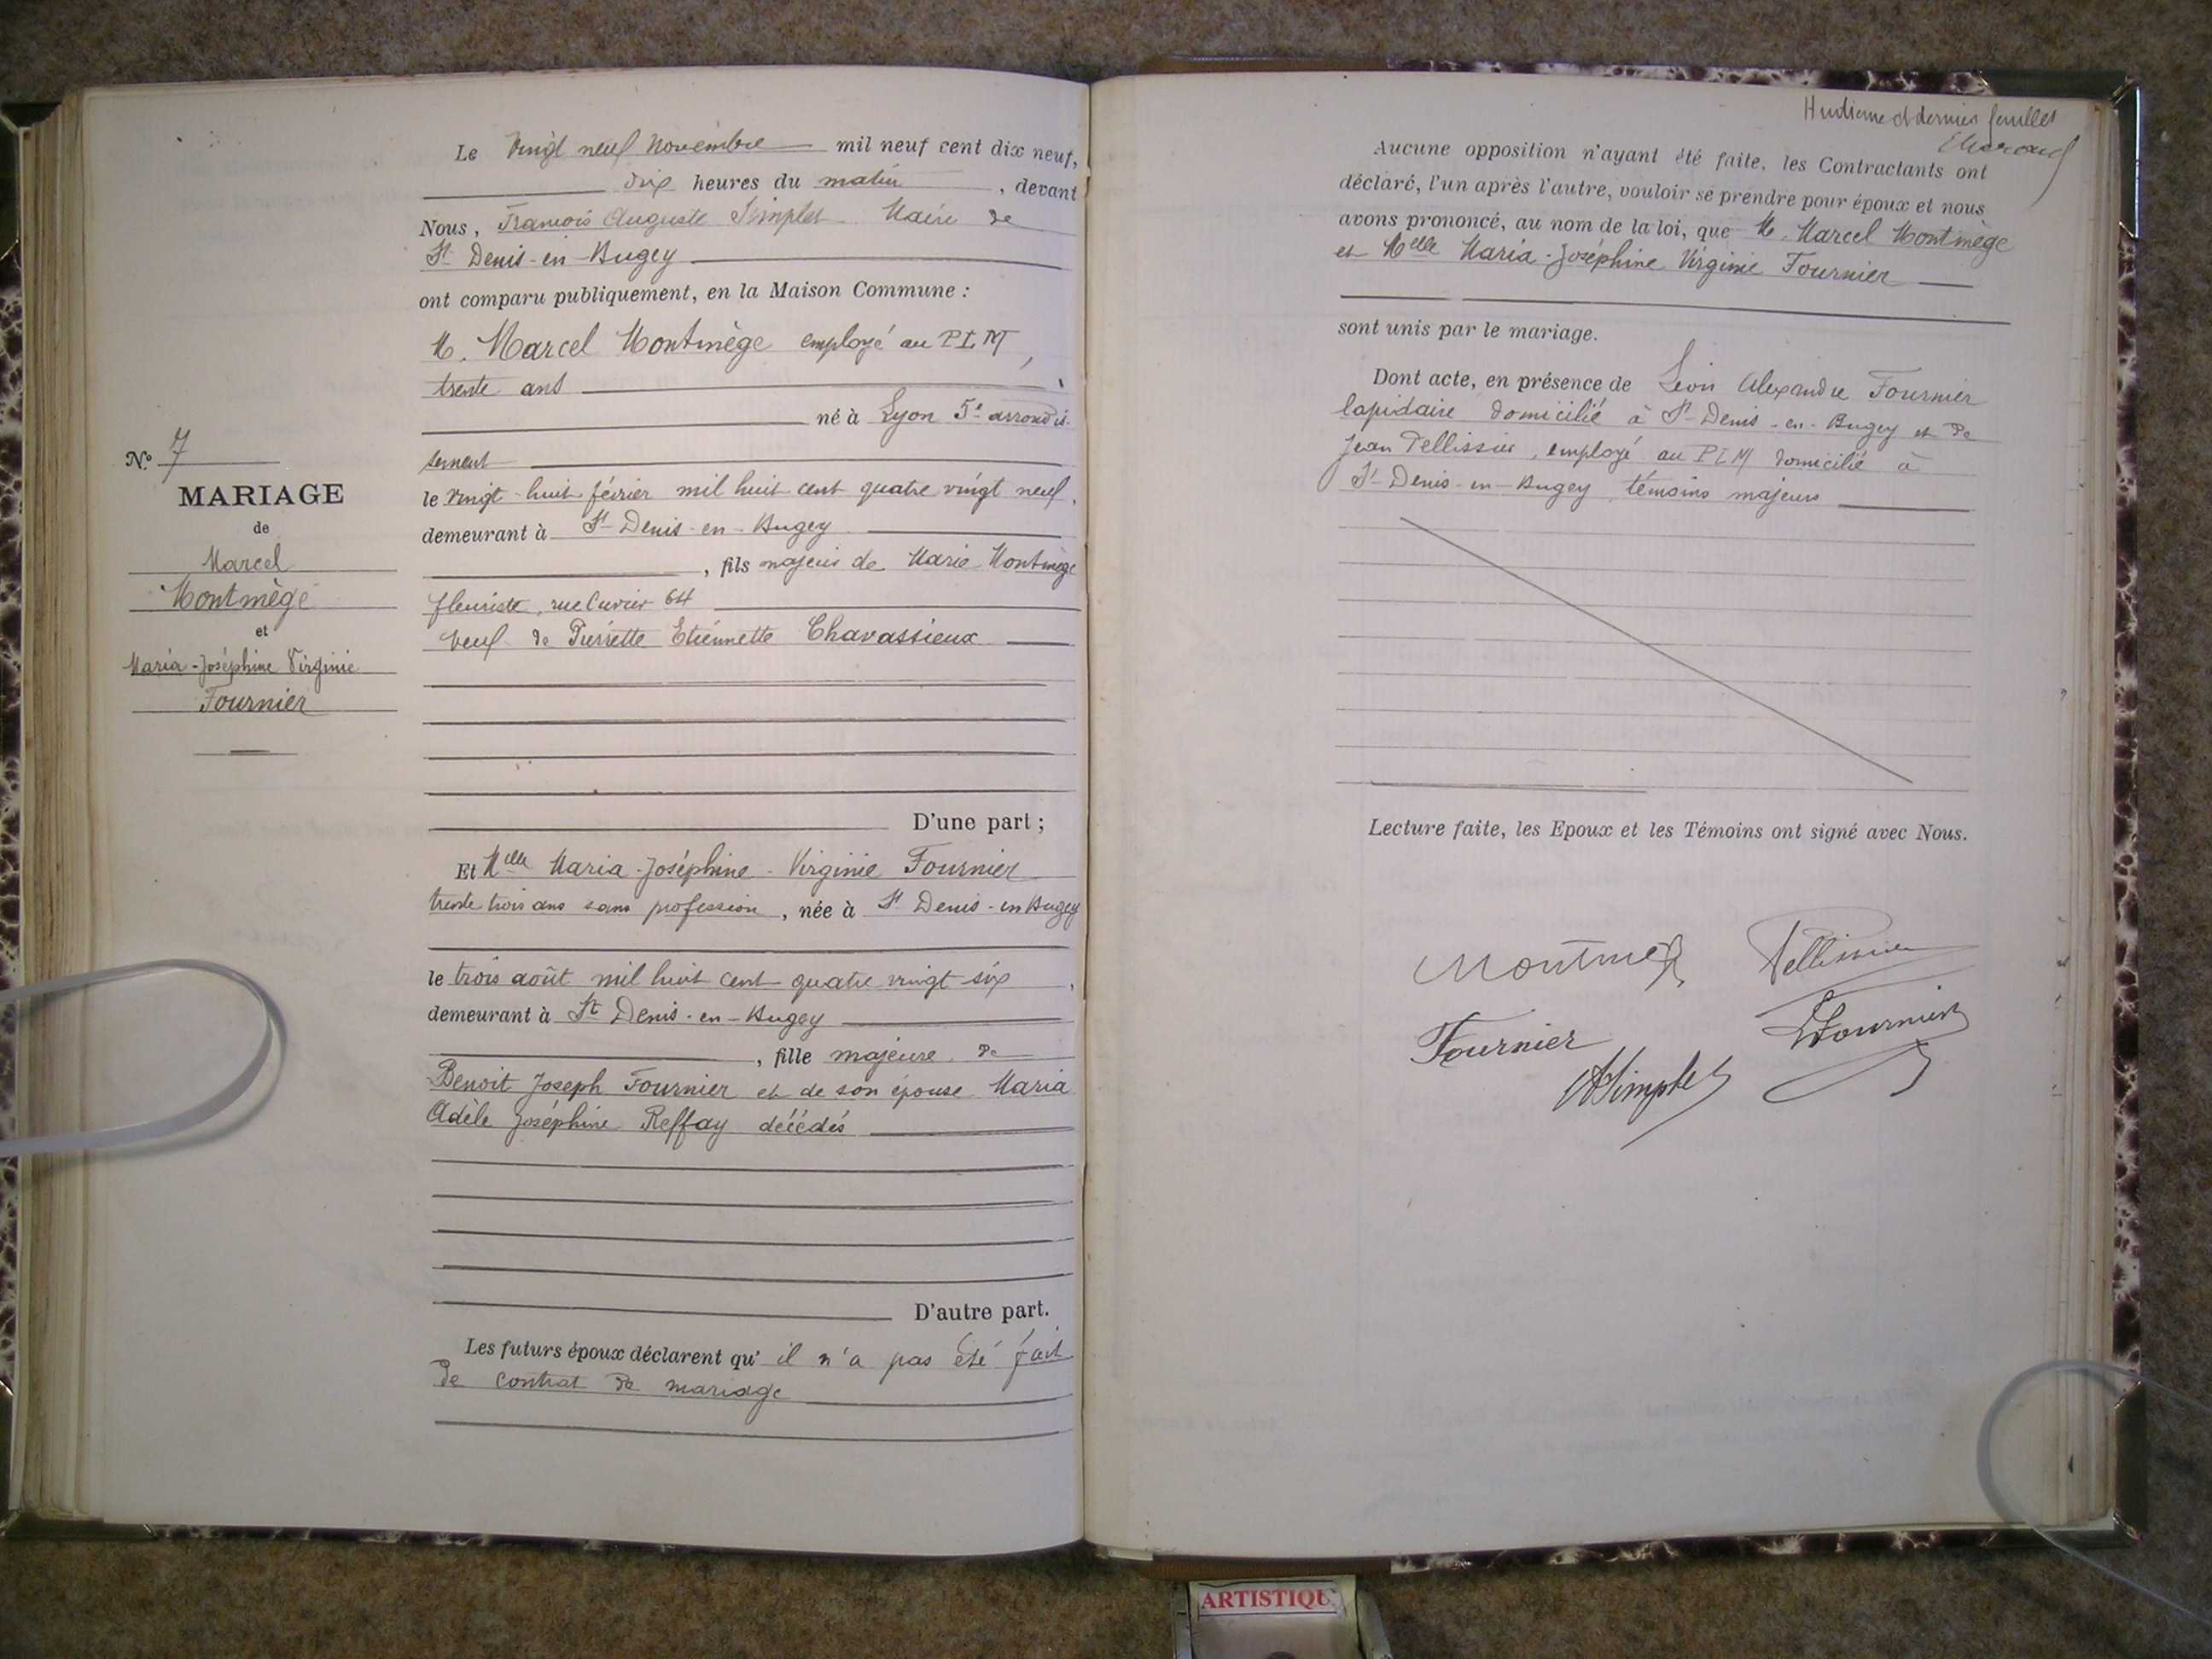 Le vingt neuf Novembre mil neuf cent dix neuf,
dix heures du matin, devant
Nous, François Auguste Simplet Maire de
St Denis-en-Bugey
ont comparu publiquement, en la Maison Commune :
M. Marcel Montmège employé au PLM,
trente ans
né à Lyon 5e arrondis-
sement
le vingt-huit février mil huit cent quatre vingt neuf,
demeurant à St Denis-en-Bugey
, fils majeur de Marie Montmège
fleuriste, rue Cuvier 64
veuf de Pierrette Etiennette Chavassieux
N° 7
MARIAGE
de
Marcel
Montmège
et
Maria-Joséphine Virginie
Fournier
D'une part ;
Et Melle Maria-Joséphine-Virginie Fournier
trente trois ans sans profession, née à St Denis-en Bugey
le trois août mil huit cent quatre vingt-six,
demeurant à St Denis-en-Bugey
, fille majeure de
Benoit Joseph Fournier et de son épouse Maria
Adèle Joséphine Reffay décédés
D'autre part.
Les futurs époux déclarent qu' il n'a pas été fait
de contrat de mariage
Huitième et dernier feuillet
Aucune opposition n'ayant été faite, les Contractants ont
déclaré, l'un après l'autre, vouloir se prendre pour époux et nous
avons prononcé, au nom de la loi, que M. Marcel Montmège
et Melle Maria-Joséphine Virginie Fournier
sont unis par le mariage.
Dont acte, en présence de Léon Alexandre Fournier
lapidaire domicilié à St-Denis-en-Bugey et de
Jean Pellissier, employé au PLM domicilié à
St-Denis-en-Bugey, témoins majeurs
Lecture faite, les Epoux et les Témoins ont signé avec Nous.
Montmeg
Pellissier
Fournier
LFournier
ASimplet
ARTISTIQU